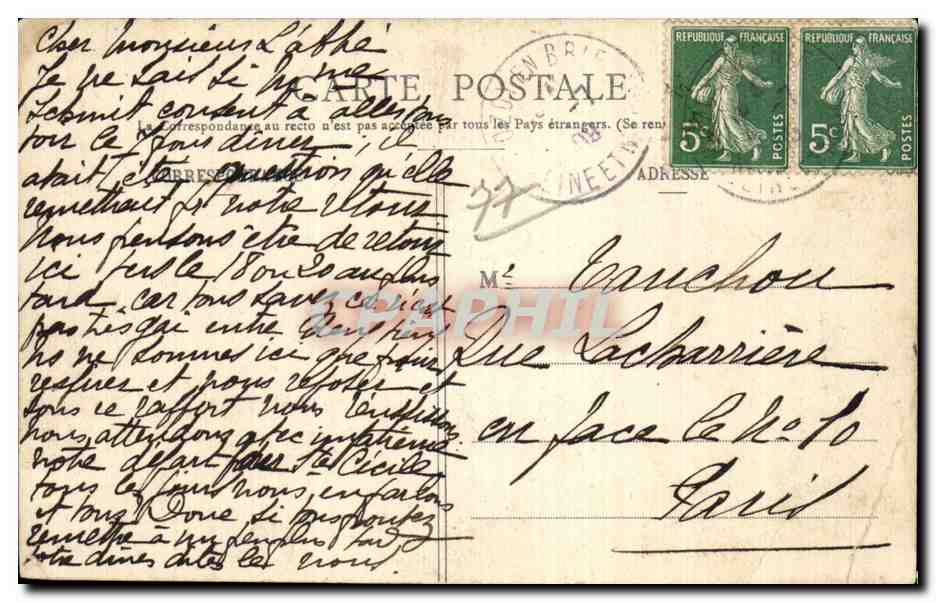 Cher Monsieur L'abbé
Je ne sais si Mme
Schmit consent à aller
pour le dîner, il
avait été question qu'elle
remettrait à votre retour
Nous pensons être de retour
ici vers le 18 ou 20 au plus
tard, car vous savez ce n'est
pas très gai entre
ns ne sommes ici que pour
respirer et nous reposer et
sous ce rapport nous réussissons
nous attendons avec impatience
notre départ pour Ste Cécile
tous les jours nous en parlons
et vous Donc si vous pouvez
remettre à un peu plus tard
votre dîner dites le nous.
CARTE POSTALE
La Correspondance au recto n'est pas acceptée par tous les Pays étrangers. (Se ren
CORRESPONDANCE
ADRESSE
77
BRIE
SEINE ET M
REPUBLIQUE FRANÇAISE
5c
POSTES
REPUBLIQUE FRANÇAISE
5c
POSTES
Mr Tauchou
Rue Lacharrière
en face le No 10
Paris
CPAPHIL